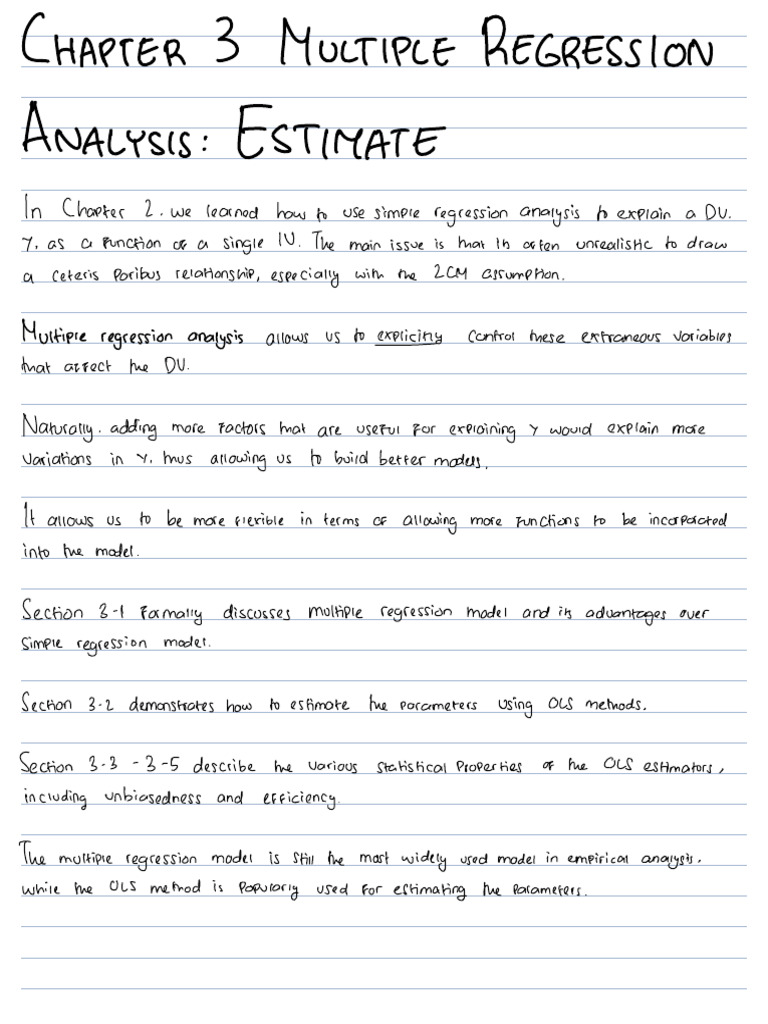 CHAPTER 3 MULTIPLE REGRESSION
ANALYSIS: ESTIMATE
In Chapter 2, we learned how to use simple regression analysis to explain a DV.
Y, as a function of a single IV. The main issue is that it's often unrealistic to draw
a ceteris paribus relationship, especially with the ZCM assumption.
Multiple regression analysis allows us to explicitly control these extraneous variables
that affect the DV.
Naturally, adding more factors that are useful for explaining y would explain more
variations in y, thus allowing us to build better models.
It allows us to be more flexible in terms of allowing more functions to be incorporated
into the model.
Section 3-1 formally discusses multiple regression model and its advantages over
simple regression model.
Section 3-2 demonstrates how to estimate the parameters using OLS methods.
Section 3-3 - 3-5 describe the various statistical properties of the OLS estimators,
including unbiasedness and efficiency.
The multiple regression model is still the most widely used model in empirical analysis,
while the OLS method is popularly used for estimating the parameters.